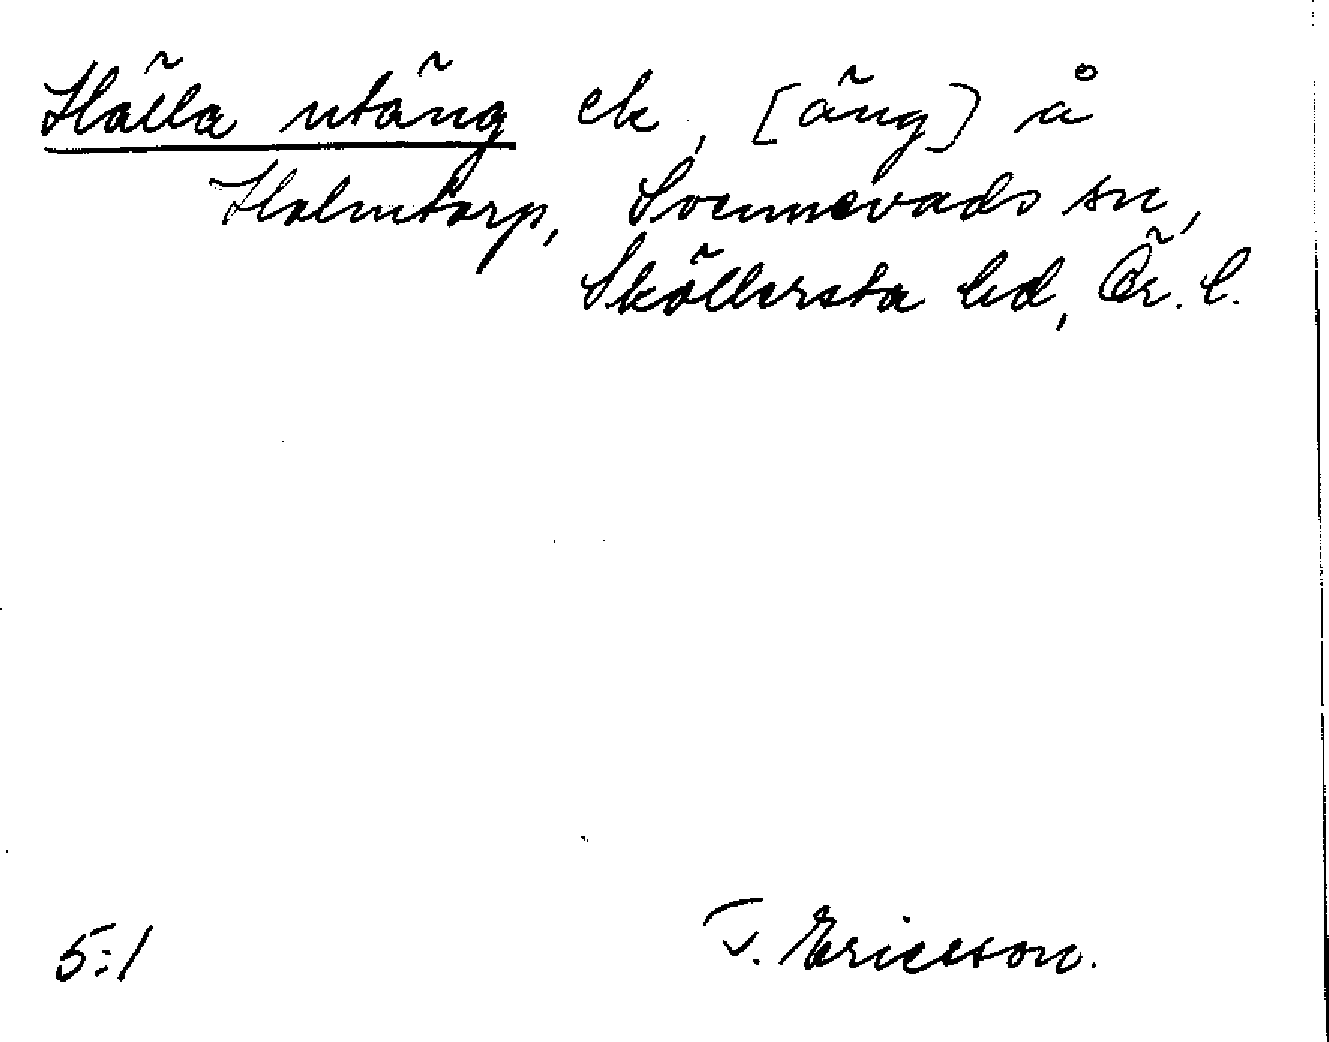 Hälla utäng ek, [äng] å
Holmtorp, Svennevads sn,
Sköllersta hd, Ör. l.
5:1
T. Ericsson.